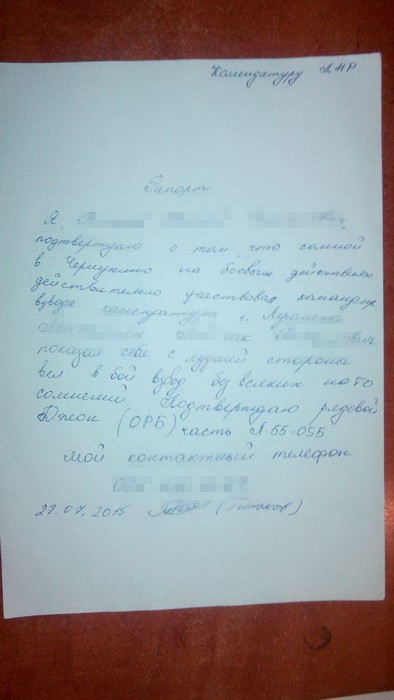 Комендатуру ЛНР
Рапорт
Я,
подтверждаю о том, что сомной
в Чернухино на боевых действиях
действительно участвовал командир
взвода комендатуры г. Луганска
показал себе с лудшей стороны
вел в бой взвод без всяких на то
сомнений Подтверждаю рядовой
Джон (ОРБ) часть А-55-055
Мой контактный телефон
27.07.2015